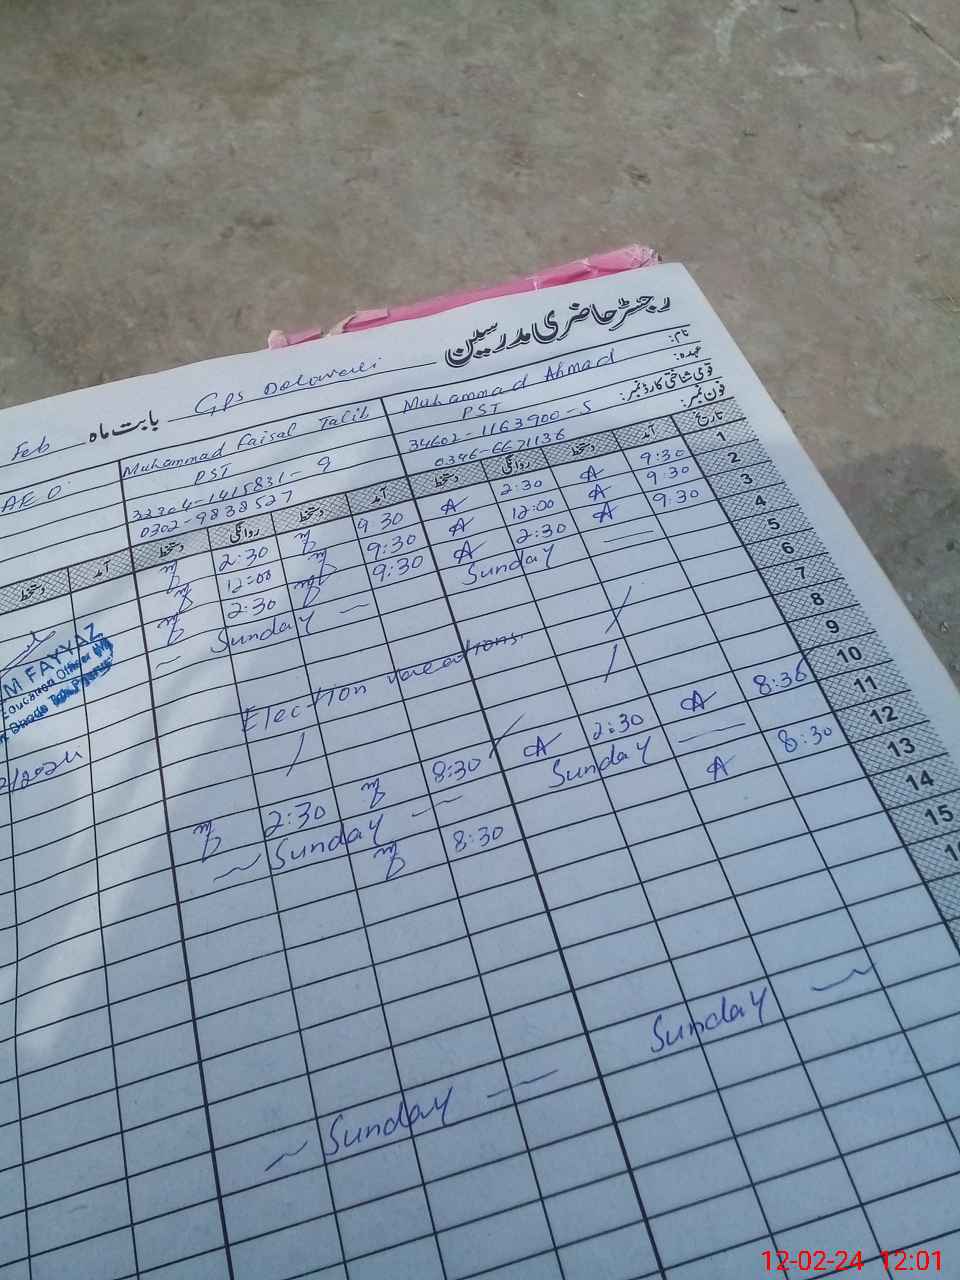 رجسٹر حاضری مدرسین
بابت ماہ Feb GPS
نام: Muhammad Ahmad Muhammad Faisal Talib
عہدہ: PST PST AEO
قومی شناختی کارڈ نمبر: 34602-1163900-5
فون نمبر: 0346-6671136 0302-9838527
تاریخ آمد دستخط روانگی دستخط آمد دستخط روانگی دستخط آمد دستخط
1 9:30 A 2:30 A 9:30 2:30
2 9:30 A 12:00 A 9:30 12:00
3 9:30 A 2:30 A 9:30 2:30
4 — Sunday — Sunday —
5
6 Election vacations
7
8
9
10 8:36 A 2:30 A 8:30 2:30
11 — Sunday — Sunday —
12 8:30 A 8:30
13
14
15
Sunday —
— Sunday —
M FAYYAZ
Education Officer
12-02-24 12:01